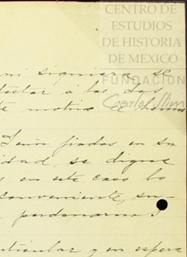 CENTRO DE
ESTUDIOS
DE HISTORIA
DE MEXICO
FUNDACIÓN
Carlos Slim
ni siquiera se
a las dos
motivo
fiados en su
se digne
en este caso lo
conveniente, su
perdonarme?
y en espera